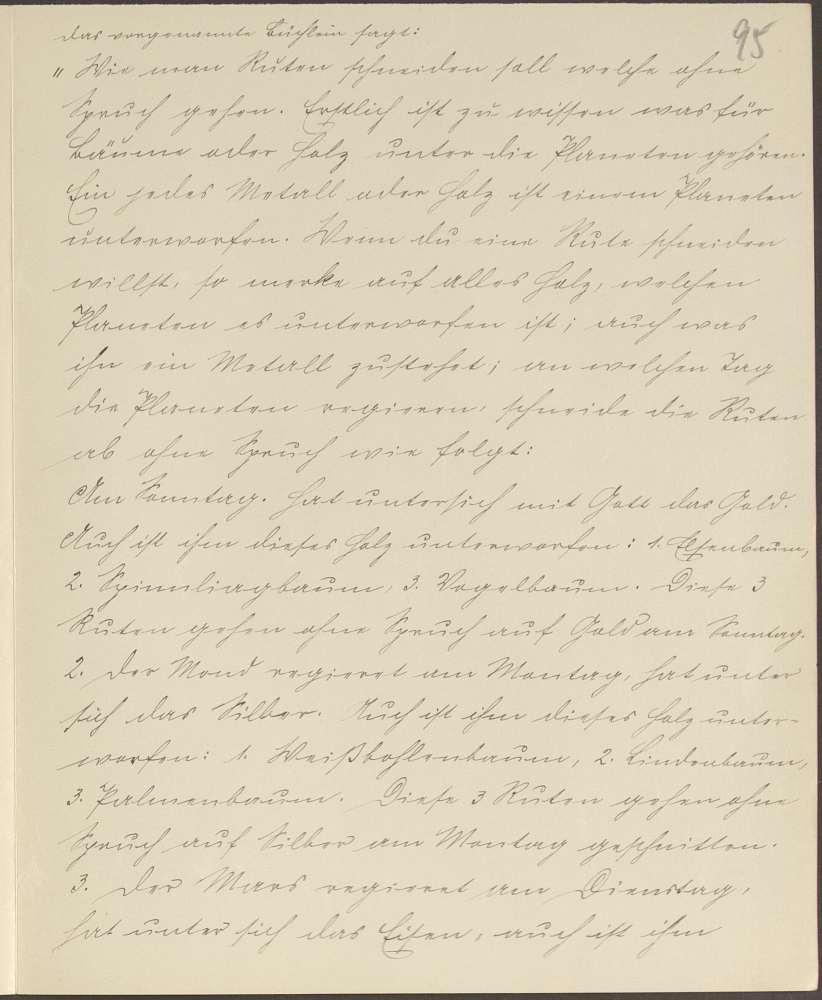 95
das vorgenannte Büchlein sagt:
„ Wie man Ruten schneiden soll welche ohne
Spruch gehen. Erstlich ist zu wissen was für
Bäume oder Holz unter die Planeten gehören.
Ein jedes Metall oder Holz ist einem Planeten
unterworfen. Wenn du eine Rute schneiden
willst, so merke auf alles Holz, welchen
Planeten es unterworfen ist; auch was
ihn ein Metall zustehet; an welchen Tag
die Planeten regieren, schneide die Ruten
ab ohne Spruch wie folgt:
Am Sonntag. Hat untersich mit Gott das Gold.
Auch ist ihm dieses Holz unterworfen: 1. Elsenbaum,
2. Spinnliagbaum, 3. Vogelbaum. Diese 3
Ruten gehen ohne Spruch auf Gold am Sonntag.
2. Der Mond regieret am Montag, hat unter
sich das Silber. Auch ist ihm dieses Holz unter-
worfen: 1. Weißbohlenbaum, 2. Lindenbaum,
3. Palmenbaum. Diese 3 Ruten gehen ohne
Spruch auf Silber am Montag geschnitten.
3. Der Mars regieret am Dienstag,
hat unter sich das Eisen, auch ist ihm